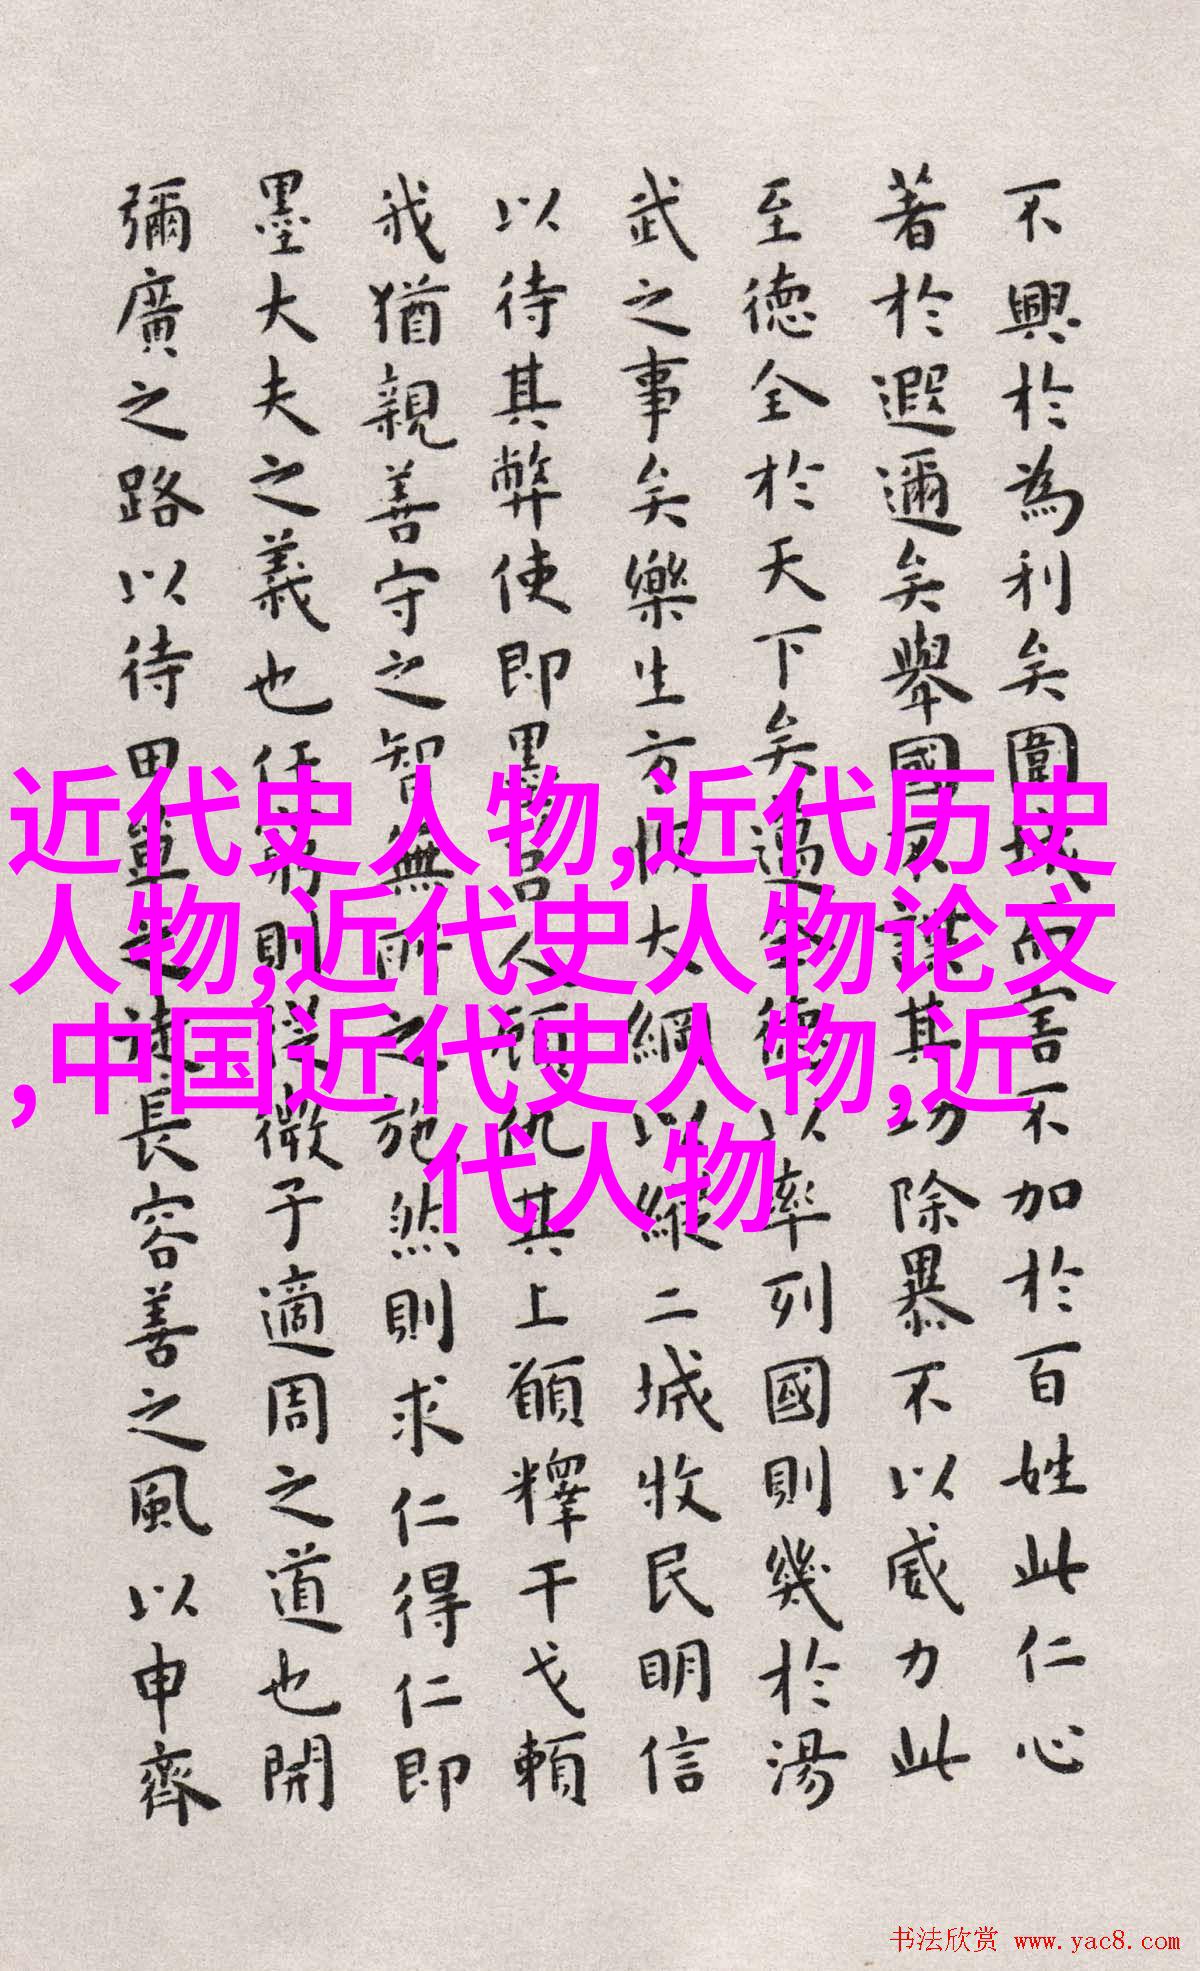 不興於為利矣圍城而害不加於百姓此仁心
著於遐邇矣舉國不謀其功除暴不以威力此
至德全於天下矣邁全德以率列國則幾於湯
武之事矣樂生方恢大綱以縱二城收民明信
以待其弊使即墨莒人顧仇其上願釋干戈賴
我猶親善守之智無所之施然則求仁得仁即
墨大夫之義也任窮則從微子適周之道也開
彌廣之路以待田單之徒長容善之風以申齊
近代史人物,近代历史
人物,近代史人物论文
,中国近代史人物,近
代人物
书法欣赏 www.yac8.com